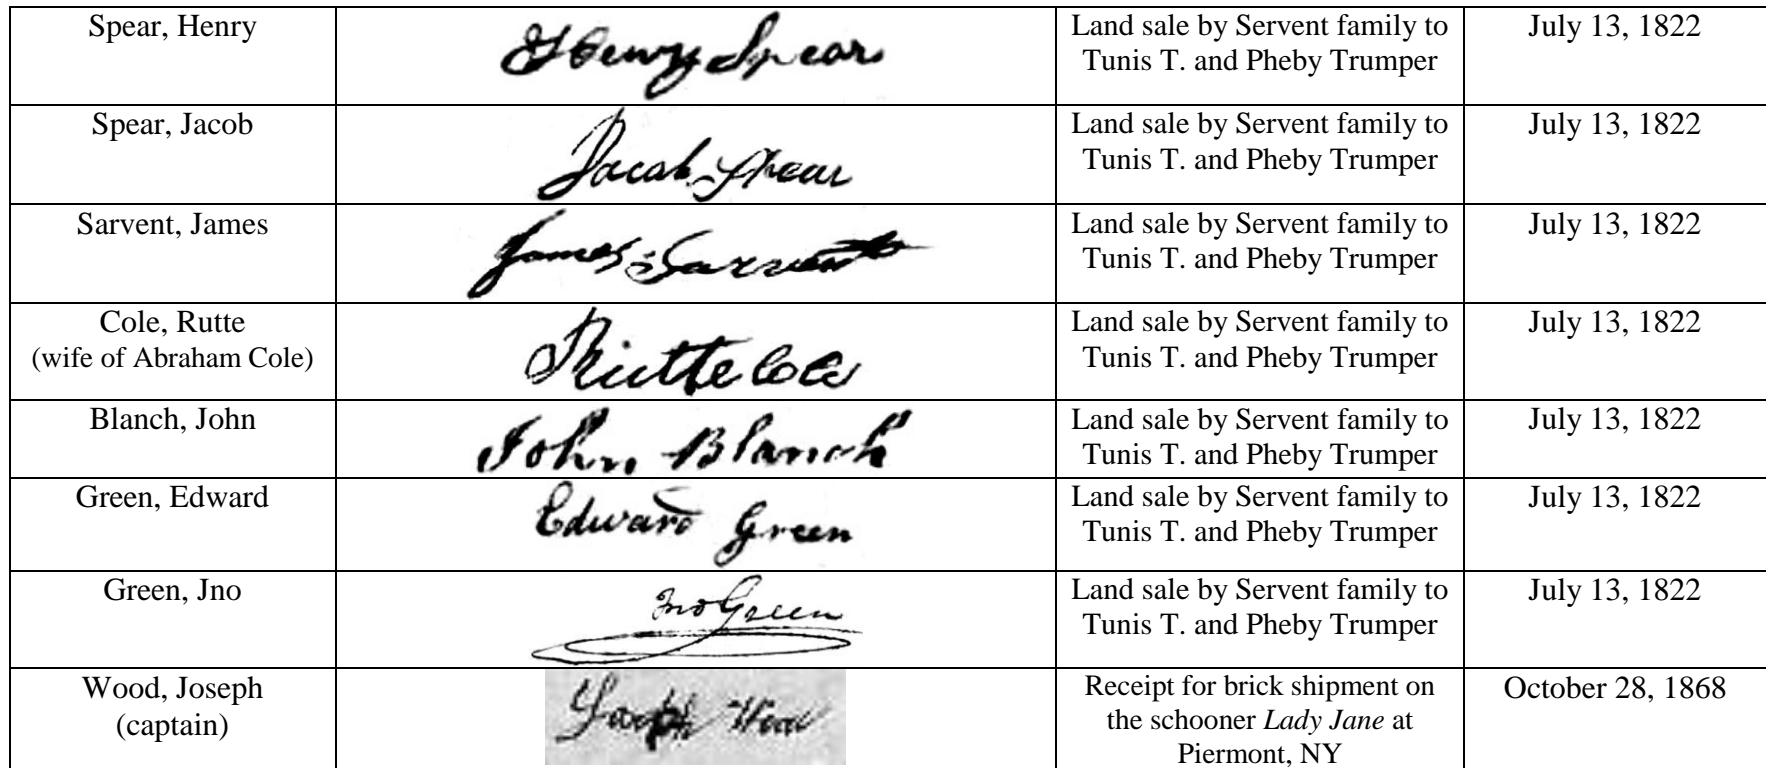 Spear, Henry
Henry Spear
Land sale by Servent family to
Tunis T. and Pheby Trumper
July 13, 1822
Spear, Jacob
Jacob Spear
Land sale by Servent family to
Tunis T. and Pheby Trumper
July 13, 1822
Sarvent, James
James Sarvent
Land sale by Servent family to
Tunis T. and Pheby Trumper
July 13, 1822
Cole, Rutte
(wife of Abraham Cole)
Rutte Cole
Land sale by Servent family to
Tunis T. and Pheby Trumper
July 13, 1822
Blanch, John
John Blanch
Land sale by Servent family to
Tunis T. and Pheby Trumper
July 13, 1822
Green, Edward
Edward Green
Land sale by Servent family to
Tunis T. and Pheby Trumper
July 13, 1822
Green, Jno
Jno Green
Land sale by Servent family to
Tunis T. and Pheby Trumper
July 13, 1822
Wood, Joseph
(captain)
Joseph Wood
Receipt for brick shipment on
the schooner Lady Jane at
Piermont, NY
October 28, 1868